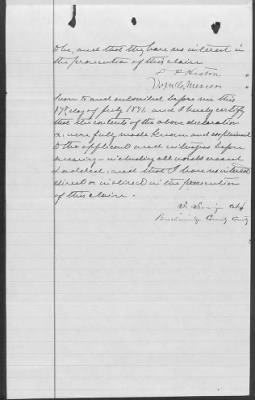 to be, and that they have no interest in
the prosecution of this claim
Sworn to and subscribed before me this
day of July 1891 and I hereby certify
that the contents of the above declaration
&c. were fully made known and explained
to the applicant and witnesses before
swearing including all words erased
& added: and that I have no interest
direct or indirect in the prosecution
of this claim.
County